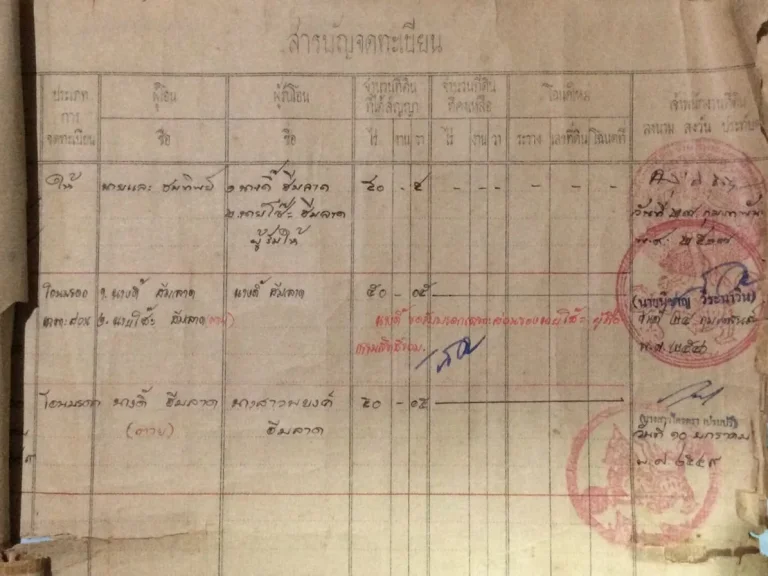 สารบัญจดทะเบียน
ประเภท
การ
จดทะเบียน
ผู้โอน
ชื่อ
ผู้รับโอน
ชื่อ
จำนวนที่ดิน
ที่ได้สัญญา
ไร่ งาน วา
จำนวนที่ดิน
ที่คงเหลือ
ไร่ งาน วา
โฉนดใหม่
ระวาง เลขที่ดิน โฉนดที่
เจ้าพนักงานที่ดิน
ลงนาม ลงวัน ประทับ
ให้ นายและ ๑ นางดี้ ฮีมลาด ๕๐ - ๕ - - - - - -
๒. นายโซ๊ะ ฮีมลาด
ผู้รับให้
วันที่ ๒๗ กุมภาพันธ์
พ.ศ. ๒๕๑๗
โอนมรดก ๑. นางดี้ ฮีมลาด นางดี้ ฮีมลาด ๕๐ - ๐๕
เฉพาะส่วน ๒. นายโซ๊ะ ฮีมลาด (ตาย)
นางดี้ ขอรับมรดกเฉพาะส่วนของนายโซ๊ะ
วันที่ ๒๔ กุมภาพันธ์
โอนมรดก นางดี้ ฮีมลาด นางสาวพยงค์ ๕๐ - ๐๕
(ตาย) ฮีมลาด
วันที่ ๑๐ มกราคม
พ.ศ. ๒๕๔๙